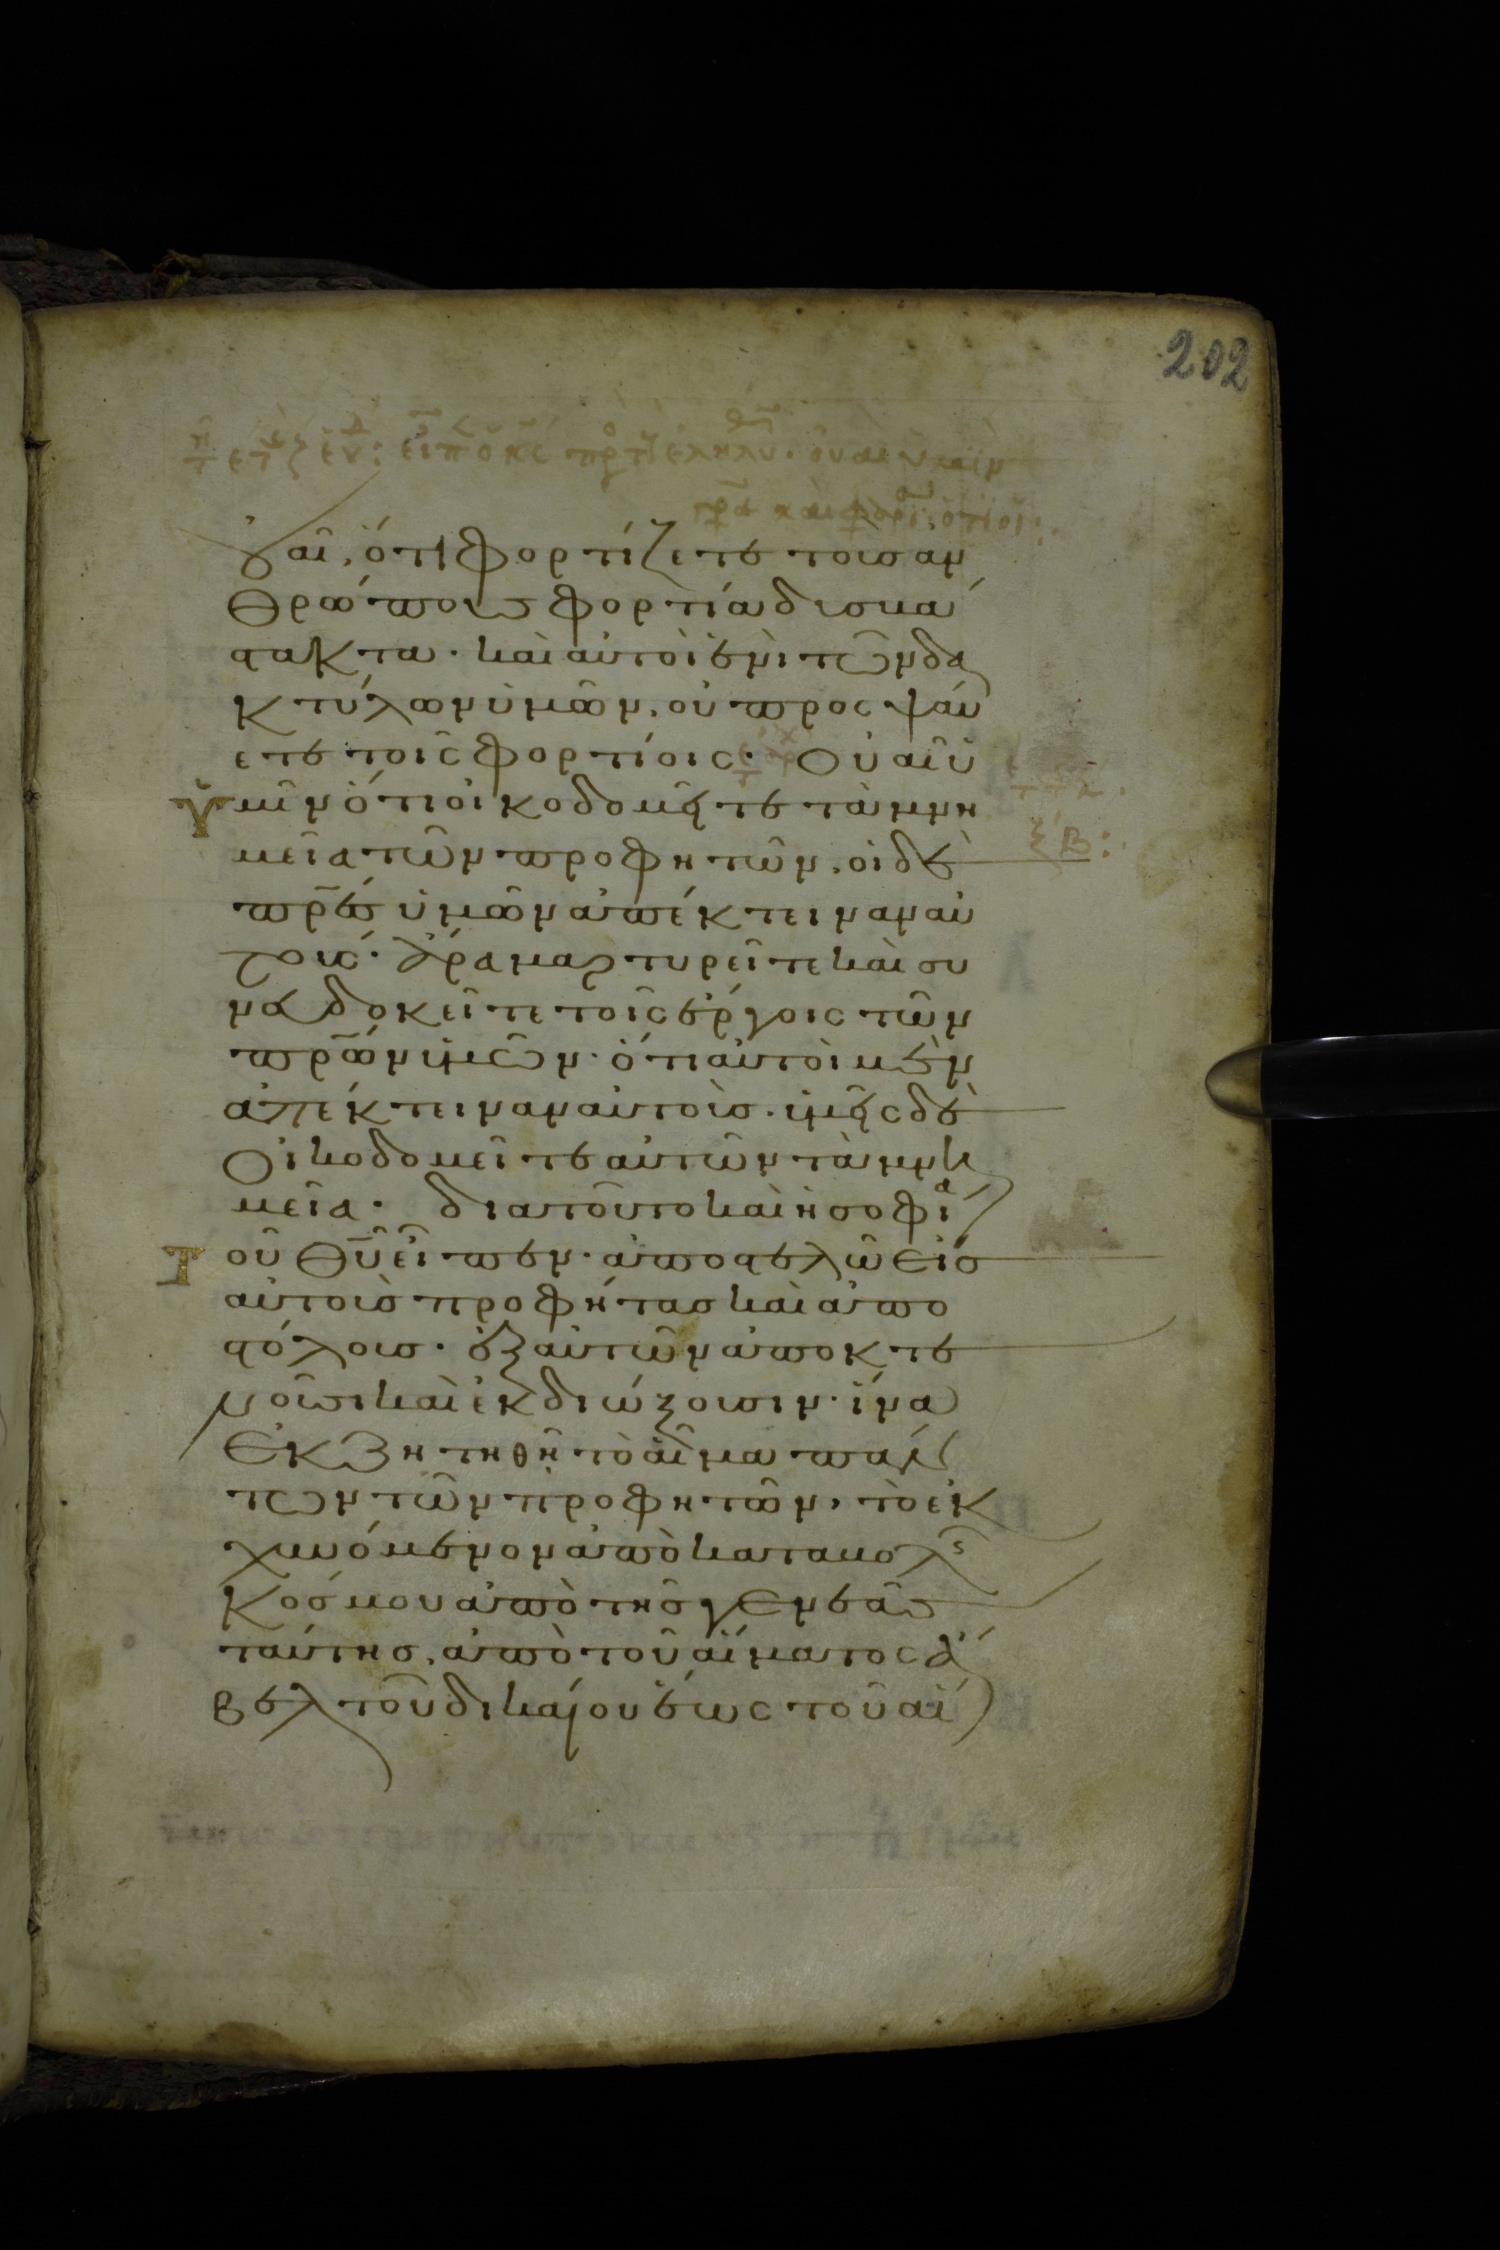 202
οὐαῖ, ὅτι φορτίζετε τοὺς ἀν
θρώπους φορτία δυσβά
στακτα· καὶ αὐτοὶ ἑνὶ τῶν δα
κτύλων ὑμῶν, οὐ προσψαύ
ετε τοῖς φορτίοις· Οὐαὶ ὑ
μῖν ὅτι οἰκοδομεῖτε τὰ μνη
μεῖα τῶν προφητῶν, οἱ δὲ
πρ̅ε̅ς ὑμῶν ἀπέκτειναν αὐ
τούς· ἄρα μαρτυρεῖτε καὶ συ
νευδοκεῖτε τοῖς ἔργοις τῶν
πρ̅ω̅ν ὑμῶν· ὅτι αὐτοὶ μὲν
ἀπέκτειναν αὐτοὺς· ὑμεῖς δὲ
Οἰκοδομεῖτε αὐτῶν τὰ μνη
μεῖα· διὰ τοῦτο καὶ ἡ σοφία
τοῦ Θ̅υ̅ εἶπεν· ἀποστελῶ εἰς
αὐτοὺς προφήτας καὶ ἀπο
στόλους· ἐξ αὐτῶν ἀποκτε
νοῦσι καὶ ἐκδιώξουσιν· ἵνα
Ἐκζητηθῆ τὸ αἷμα πάν
των τῶν προφητῶν, τὸ ἐκ
χυνόμενον ἀπὸ καταβολῆς
Κόσμου ἀπὸ τῆς γενεᾶς
ταύτης, ἀπὸ τοῦ αἵματος Ἄ
βελ τοῦ δικαίου ἕως τοῦ αἵ